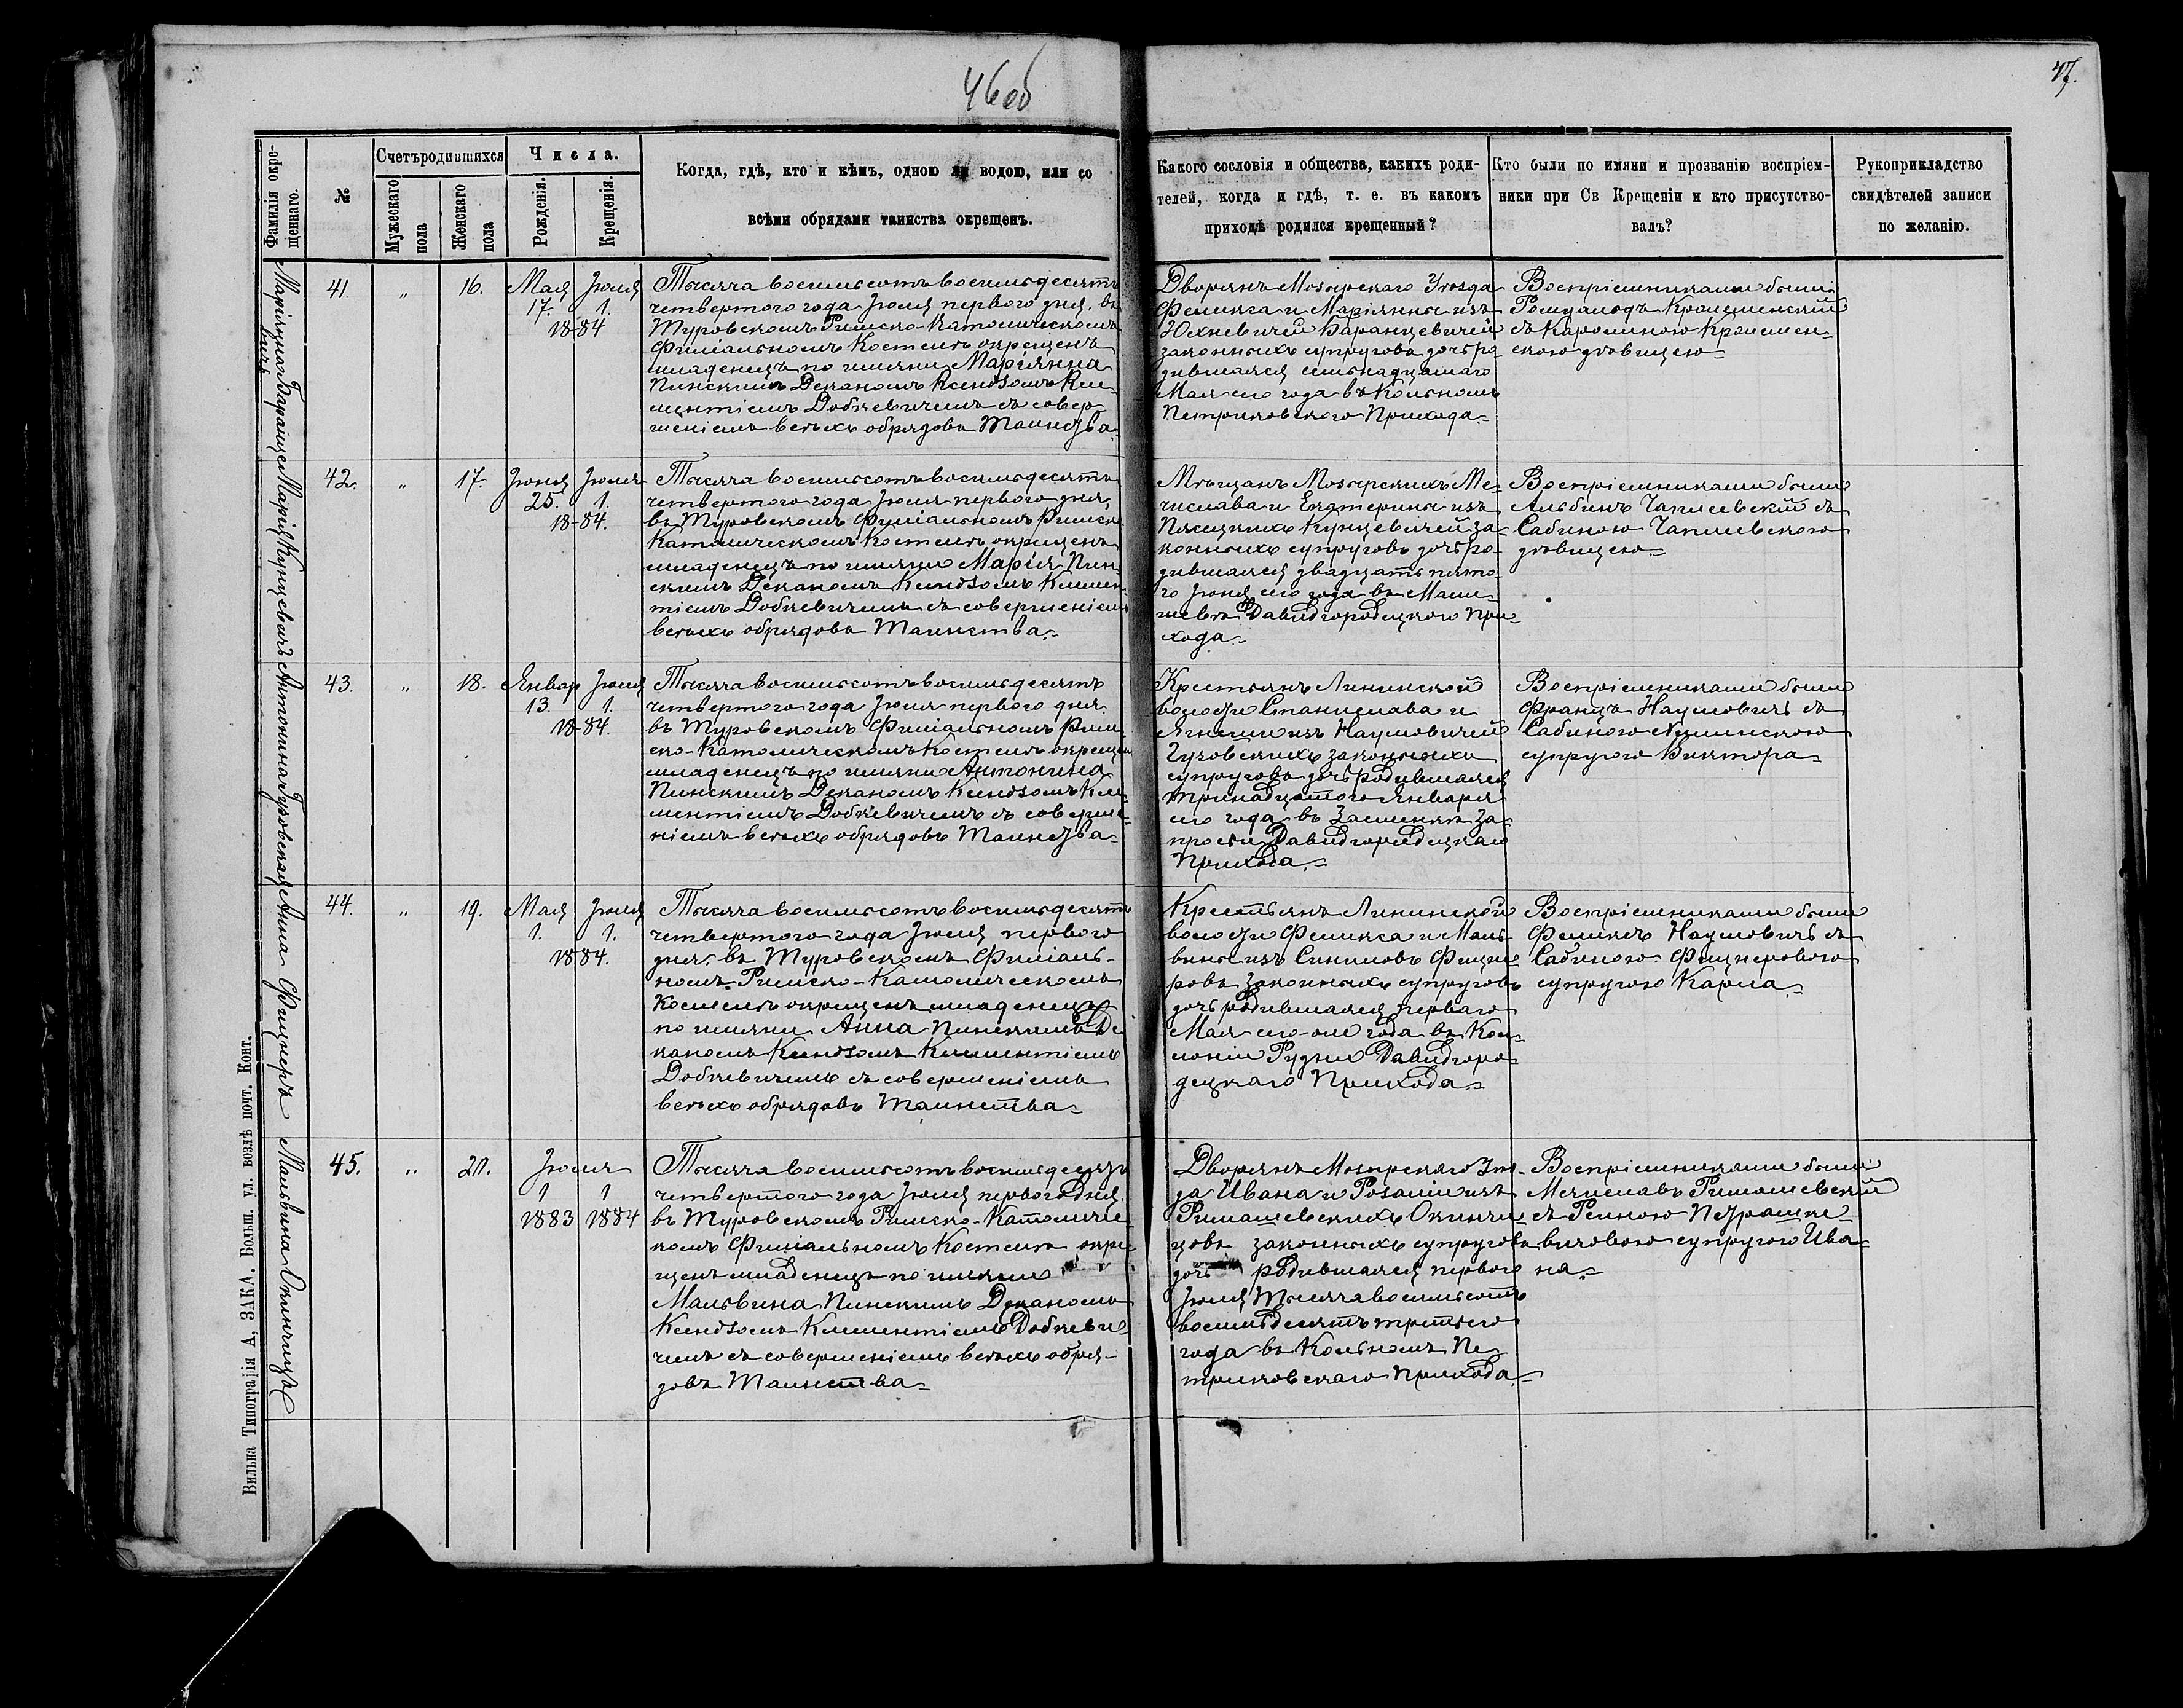 46об
47.
Фамилія окре-
щеннаго.
№
Счетъ родившихся
Мужескаго
пола
Женскаго
пола
Числа.
Рожденія.
Крещенія.
Когда, гдѣ, кто и кѣмъ, одною ли водою, или со
всѣми обрядами таинства окрещенъ.
Какого сословія и общества, какихъ роди-
телей, когда и гдѣ, т. е. въ какомъ
приходѣ родился крещенный?
Кто были по имяни и прозванію воспріем-
ники при Св Крещеніи и кто присутство-
валъ?
Рукоприкладство
свидѣтелей записи
по желанію.
41.
„
16.
Мая Іюля
17. 1.
1884
Тысяча восемьсотъ восемьдесятъ
четвертого года Іюля первого дня. въ
Туровскомъ Римско-Католическомъ
Филіальномъ Костелѣ окрещенъ
младенецъ по имяни Маріянна
Пинскимъ Деканомъ Ксендзомъ Кли-
ментіемъ Добкевичемъ съ совер-
шеніемъ всѣхъ обрядовъ Таинства
Дворянъ Мозырскаго Уѣзда
Феликса и Маріянны изъ
Юхневичей Баранцевичей
законныхъ супруговъ дочь ро-
дившаяся семьнадцатаго
Мая сего года въ Кольномъ
Петриковского Прихода
Воспріемниками были
Ромуальдъ
съ Каролиною
скою дѣвицею
42.
„
17.
Іюня Іюля
25. 1.
1884.
Тысяча восемьсотъ восемьдесятъ
четвертого года Іюля первого дня,
въ Туровскомъ Филіальномъ Римско
Католическомъ Костелѣ окрещенъ
младенецъ по имяни Марія Пин-
скимъ Деканомъ Ксендзомъ Климен-
тіемъ Добкевичемъ съ совершеніемъ
всѣхъ обрядовъ Таинства
Мѣщанъ Мозырскихъ Ме-
числава и Екатерины изъ
Плесецкихъ Кунцевичей за-
конныхъ супруговъ дочь ро-
дившаяся двадцать пято-
го Іюня сего года въ
Давидгородецкого При-
хода
Воспріемниками были
Альбинъ Чаплевскій съ
Сабиною Чаплевскою
дѣвицею
43.
„
18.
Январ Іюля
13 1.
1884.
Тысяча восемьсотъ восемьдесятъ
четвертого года Іюля первого дня.
въ Туровскомъ Филіальномъ Рим-
ско-Католическомъ Костелѣ окрещен
младенецъ по имяни Антонина
Пинскимъ Деканомъ Ксендзомъ Кли-
ментіемъ Добкевичемъ съ соверше-
ніемъ всѣхъ обрядовъ Таинства
Крестьянъ Ленинской
волости Станислава и
Агнешки изъ Наумовичей
Гузовскихъ законныхъ
супруговъ дочь родившаяся
тринадцатого Января
сего года въ Застенкѣ За-
просы Давидгородецкаго
Прихода
Воспріемниками были
Францъ Наумовичъ съ
Сабиною
супругою Виктора
44.
„
19.
Мая Іюля
1. 1.
1884.
Тысяча восемьсотъ восемьдесятъ
четвертого года Іюля первого
дня. въ Туровскомъ Филіаль-
номъ Римско-Католическомъ
Костелѣ окрещенъ младенецъ
по имяни Анна Пинскимъ Де
каномъ Ксендзомъ Климентіемъ
Добкевичемъ съ совершеніемъ
всѣхъ обрядовъ Таинства
Крестьянъ Ленинской
волости Феликса и Маль-
вины изъ Фицне-
ровъ законныхъ супруговъ
дочь родившаяся перваго
Мая сего-же года въ Кол-
лоніи Рудни Давидгоро-
децкаго Прихода
Воспріемниками были
Феликсъ Наумовичъ съ
Сабиною Фицнеровою
супругою Карла
45.
„
20.
Іюля
1 1
1883 1884
Тысяча восемьсотъ восемьдесятъ
четвертого года Іюля первого дня.
въ Туровскомъ Римско-Католичес-
комъ Филіальномъ Костелѣ окре-
щенъ младенецъ по имяни
Мальвина Пинскимъ Деканомъ
Ксендзомъ Климентіемъ Добкеви-
чемъ съ совершеніемъ всѣхъ обря-
довъ Таинства
Дворянъ Мозырскаго Уѣз-
да Ивана и Розаліи изъ
Римашевскихъ Окинчи-
цовъ законныхъ супруговъ
дочь родившаяся первого
Іюля Тысяча восемьсотъ
восемьдесятъ третьего
года въ Кольномъ Пе-
триковскаго Прихода
Воспріемниками были
Мечиславъ Римашевскій
съ Региною Петрашке-
вичовою супругою Ива-
на
Маріянна Баранце-
вичъ
Марія Кунцевичъ
Антонина Гузовская
Анна Фицнеръ
Мальвина Окинчицъ
Вильна Типографія А, ЗАКА. Больш. ул. возлѣ почт. Конт.